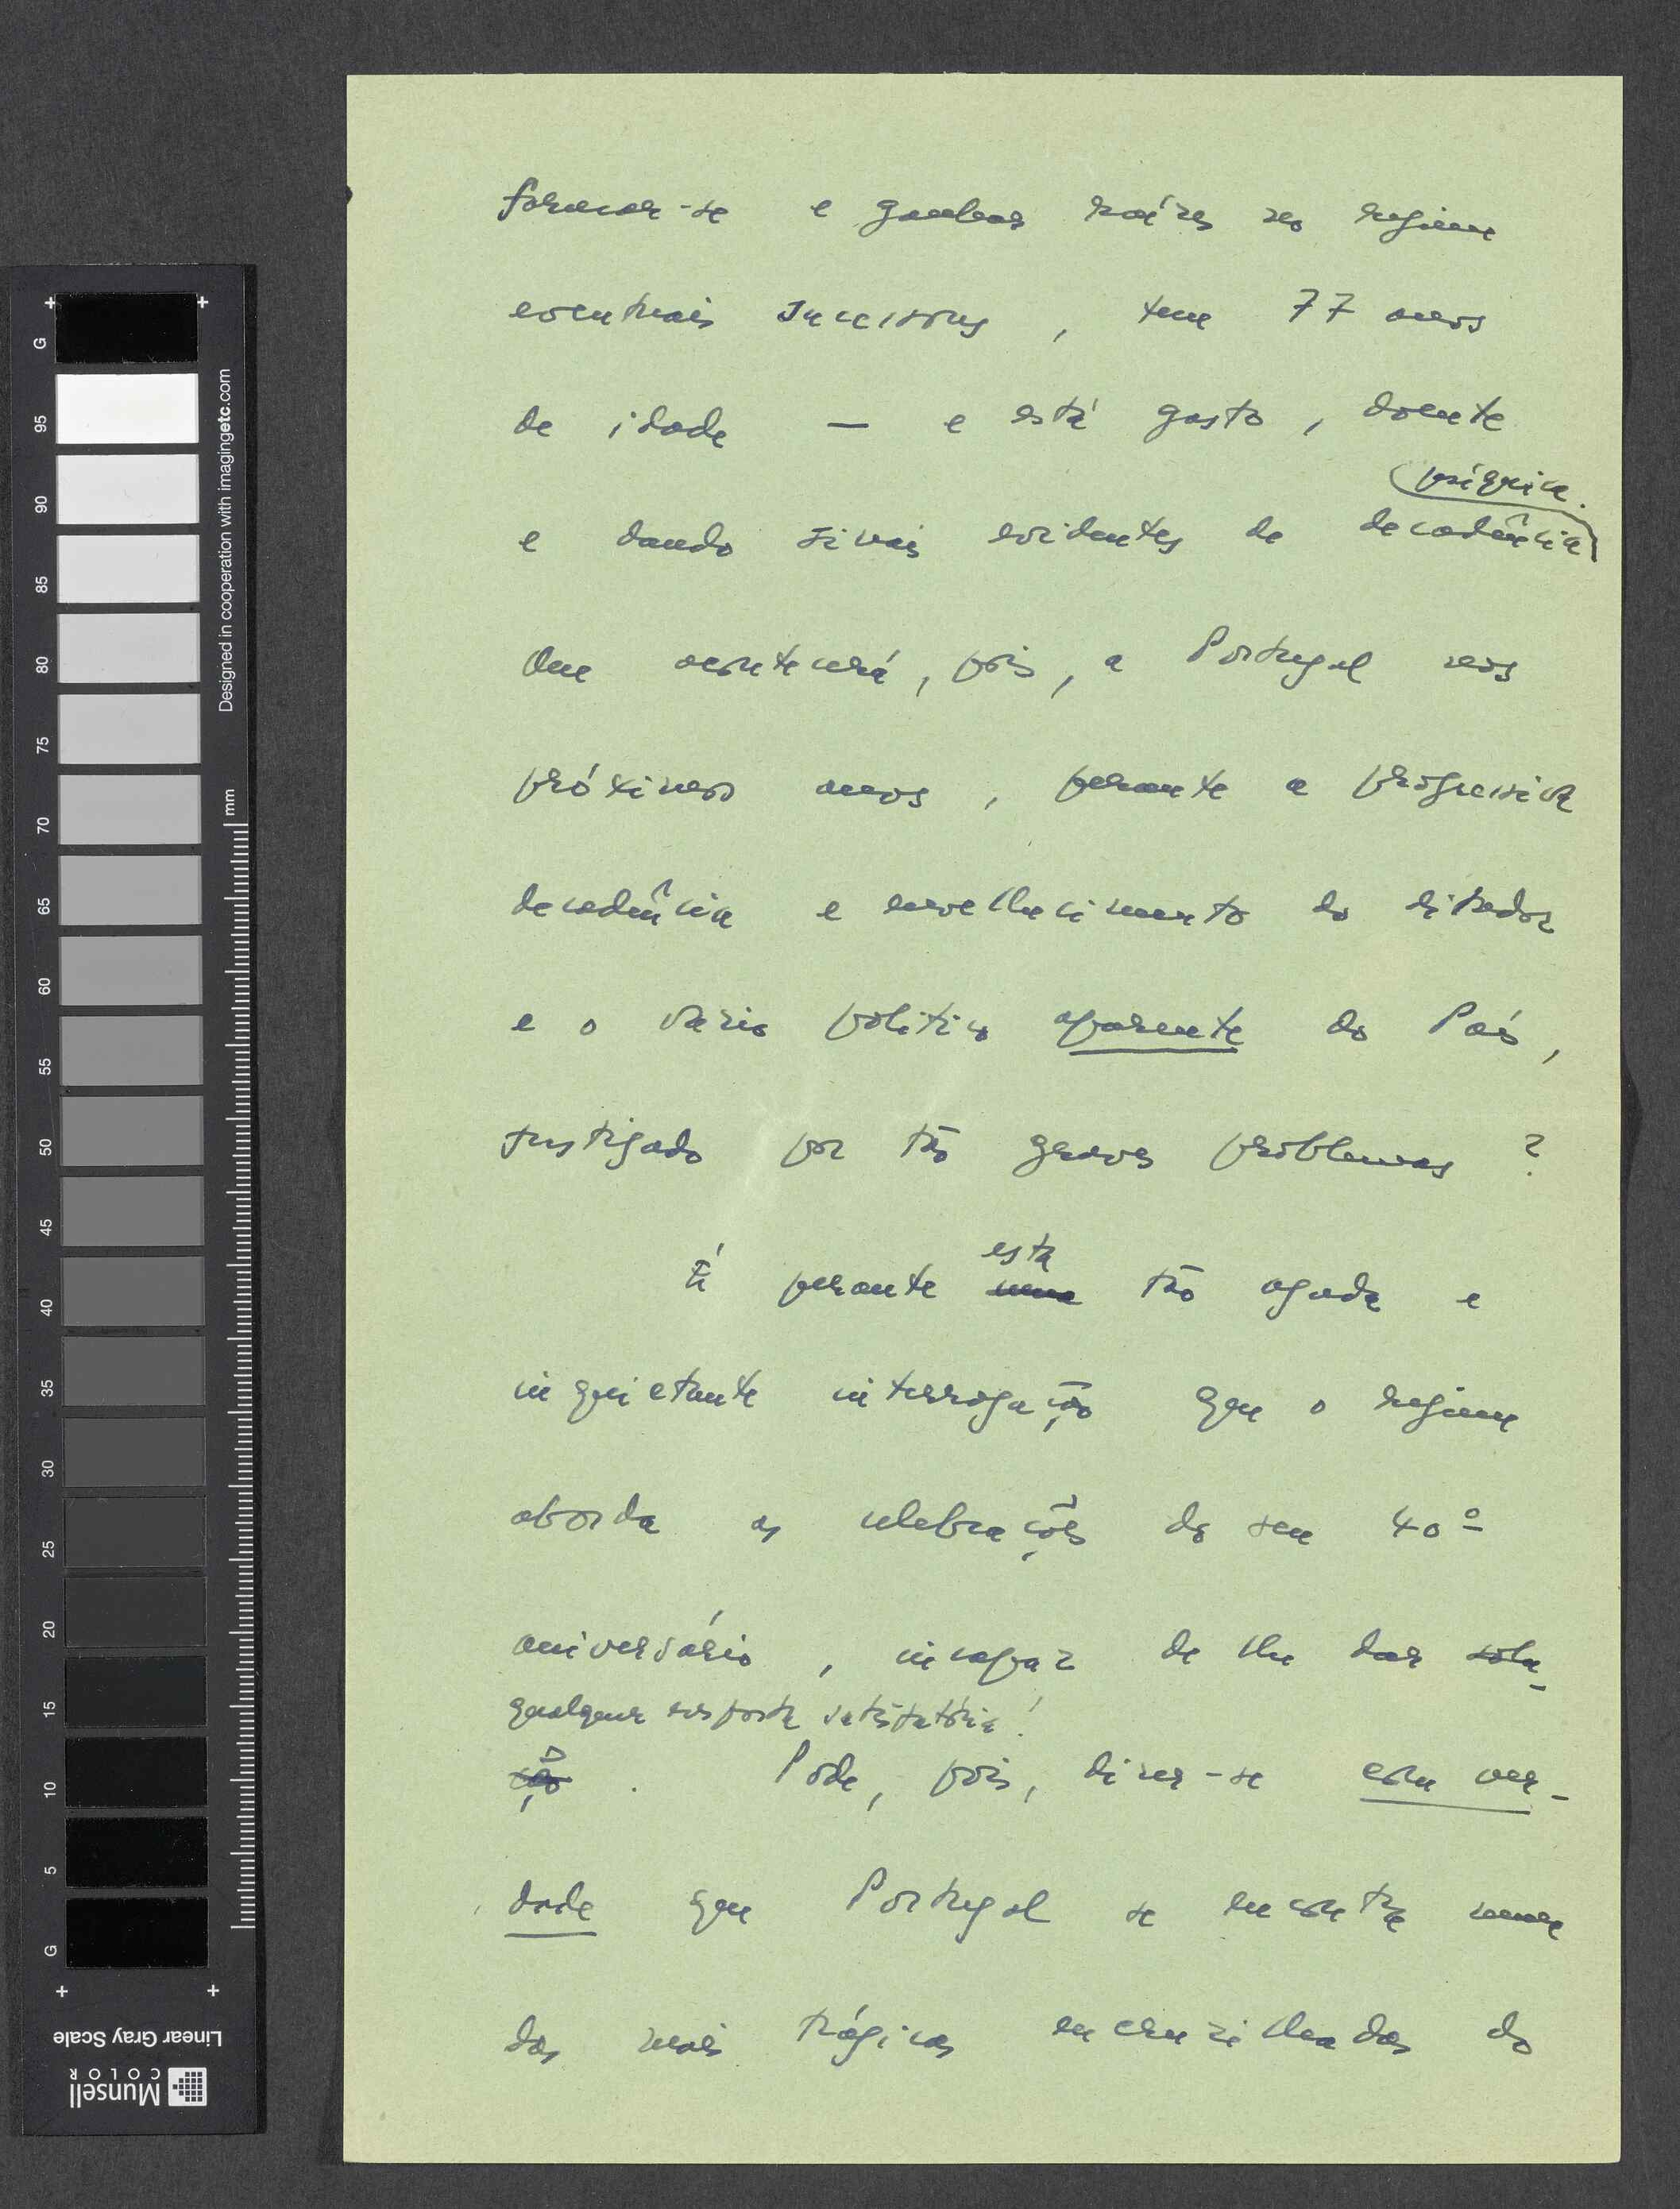 formar-se e ganhar raízes no regime
eventuais sucessores, tem 77 anos
de idade — e está gasto, doente
psíquica.
e dando sinais evidentes de decadência
Que acontecerá, pois, a Portugal nos
próximos anos, perante a progressiva
decadência e envelhecimento do ditador
e o vazio político aparente do País,
fustigado por tão graves problemas?
esta
É perante uma tão aguda e
inquietante interrogação que o regime
aborda as celebrações do seu 40º
aniversário, incapaz de lhe dar solu-
qualquer resposta satisfatória!
ção. Pode, pois, dizer-se com ver-
dade que Portugal se encontra numa
das mais trágicas encruzilhadas do
G
95
90
85
80
75
70
65
60
55
50
45
40
35
30
25
20
15
10
5
G
mm
Designed in cooperation with imagingetc.com
Linear Gray Scale
Munsell
COLOR